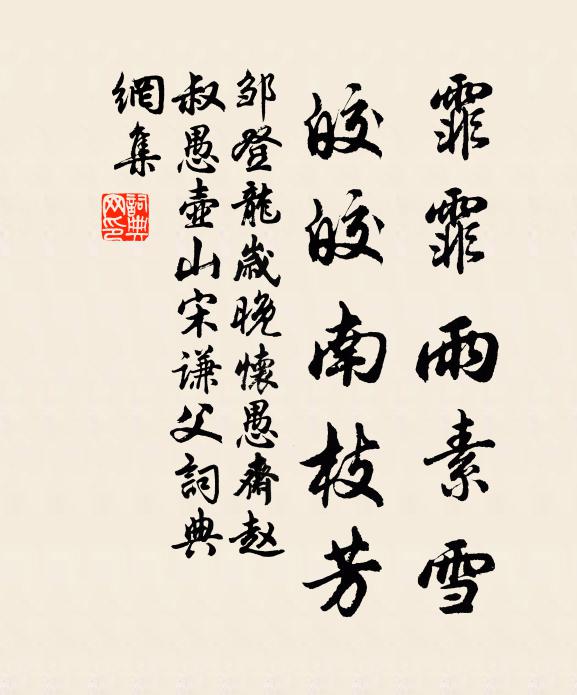 霏霏雨素雪
皎皎南枝芳
邹登龍歲晚懷愚齋赵
叔愚壺山宋謙父詞典
網集
詞典网印